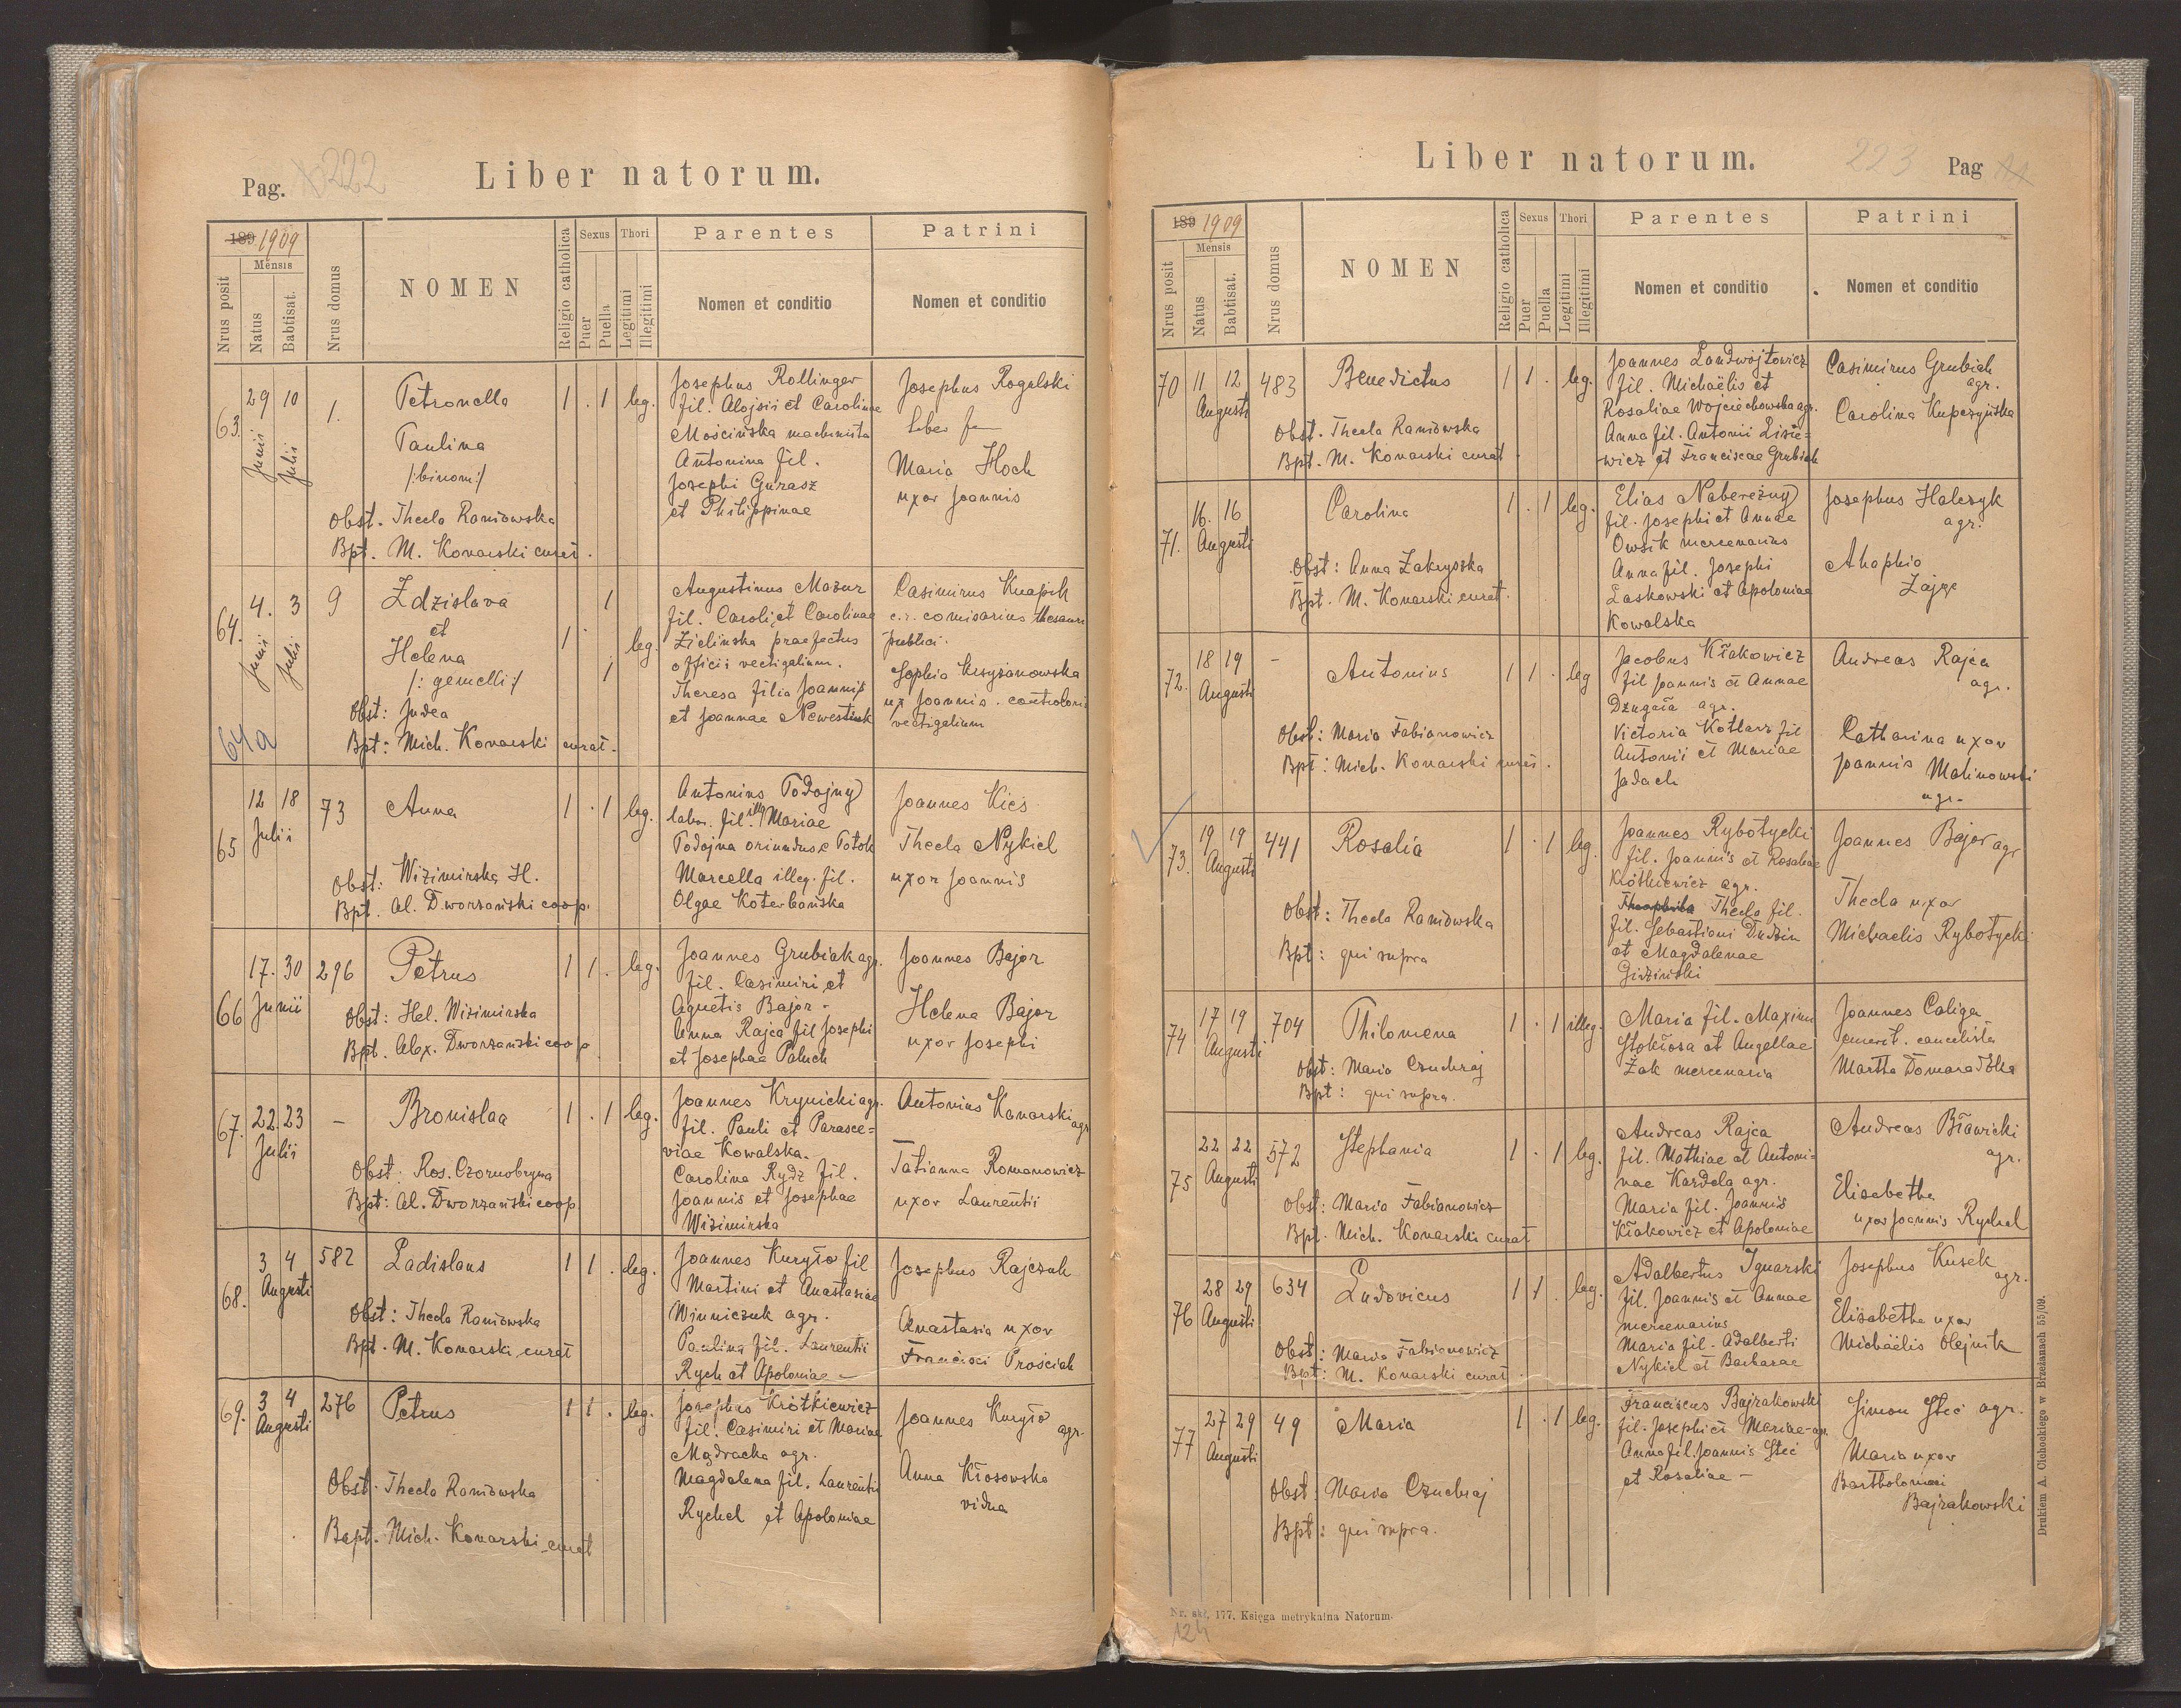 Pag. 222
Liber natorum.
189 1909
Nrus posit
Mensis
Natus
Babtisat.
Nrus domus
NOMEN
Religio catholica
Sexus
Puer
Puella
Thori
Legitimi
Illegitimi
Parentes
Nomen et conditio
Patrini
Nomen et conditio
63.
29 10
Junii Julii
1.
Petronella
Paulina
/:binom:/
Obst. Thecla Raniowska
Bpt. M. Konarski curat.
1 . 1 leg.
Josephus Rollinger
fil. Alojsii et Carolinae
Mościńska machinista
Antonina fil.
Josephi Gurasz
et Philippinae
Josephus Rogalski
Maria Hoch
uxor Joannis
64.
4. 3
Junii Julii
9
Zdzislava
et
Helena
/: gemelli:/
Obst: Judea
Bpt: Mich. Konarski curat.
64a
1
1
1
leg.
Augustinus Mazur
fil. Caroli et Carolinae
Zielinska praefectus
officii vectigalium.
Theresa filia Joannis
et Joannae Newestiuk
Casimirus Knapik
c.r. comisarius thesauri
publici.
Sophia Krzyżanowska
ux Joannis. controlori
vectigalium
65
12 18
Julii
73
Anna
Obst: Wizimirska H.
Bpt. Al. Dworzański coop.
1 . 1 leg.
Antonius Podojny
labor. fil. illeg Mariae
Podojna oriundus e Potok
Marcella illeg. fil.
Olgae Koterbańska
Joannes Kies
Thecla Nykiel
uxor Joannis
66
17. 30
Junii
296
Petrus
Obst: Hel. Wizimirska
Bpt. Alex. Dworzański coop
1 1 . leg.
Joannes Grubiak agr.
fil. Casimiri et
Agnetis Bajor -
Anna Rajca fil Josephi
et Josephae Paluch
Joannes Bajor
Helena Bajor
uxor Josephi
67.
22. 23
Julii
-
Bronislaa
Obst: Ros. Czornobrywa
Bpt: Al. Dworzański coop
1 . 1 leg.
Joannes Krynicki agr.
fil. Pauli et Parasce=
viae Kowalska.
Carolina Rydz fil.
Joannis et Josephae
Wizimirska
Antonius Konarski agr
Tatianna Romanowicz
uxor Laurentii
68.
3 4
Augusti
582
Ladislaus
Obst: Thecla Raniowska
Bpt. M. Konarski curat
1 1 . leg.
Joannes Kuryło fil
Martini et Anastasiae
Winniczuk agr.
Paulina fil. Laurentii
Rych et Apoloniae -
Josephus Rajczuk
Anastasia uxor
Francisci Prościak
69.
3 4
Augusti
276
Petrus
Obst. Thecla Raniowska
Bapt. Mich. Konarski curat
1 1 . leg.
Josephus Krótkiewicz
fil. Casimiri et Mariae
Mądracka agr.
Magdalena fil. Laurentii
Rychel et Apoloniae
Joannes Kuryło
agr.
Anna Kłosowska
vidua
Liber natorum.
223 Pag
189 1909
Nrus posit
Mensis
Natus
Babtisat.
Nrus domus
NOMEN
Religio catholica
Sexus
Puer
Puella
Thori
Legitimi
Illegitimi
Parentes
Nomen et conditio
Patrini
Nomen et conditio
70
11 12
Augusti
483
Benedictus
Obst. Thecla Raniowska
Bpt. M. Konarski curat
1 1 . leg.
Joannes Landwójtowicz
fil. Michaëlis et
Rosaliae Wojciechowska agr.
Anna fil. Antonii Lisie=
wicz et Franciscae Grubiak
Casimirus Grubiak
agr.
Carolina Kupczyńska
71.
16. 16
Augusti
Carolina
Obst: Anna Zakryoska
Bpt. M. Konarski curat.
1 . 1 leg.
Elias Nabereżny
fil. Josephi et Annae
Owsik mercenarius
Anna fil. Josephi
Laskowski et Apoloniae
Kowalska
Josephus Halczyk
agr.
Ahaphia
Zając
72.
18 19
Augusti
-
Antonius
Obst: Maria Fabianowicz
Bpt: Mich. Konarski curat.
1 1 . leg
Jacobus Kłakowicz
fil Joannis et Annae
Dzugała agr.
Victoria Kotlarz fil
Antonii et Mariae
Jadach
Andreas Rajca
agr.
Catharina uxor
Joannis Malinowski
agr.
73.
19 19
Augusti
441
Rosalia
Obst: Thecla Raniowska
Bpt: qui supra
1 . 1 leg.
Joannes Rybotycki
fil. Joannis et Rosaliae
Krótkiewicz agr.
Theophila Thecla fil.
fil. Sebastiani Dudzin
et Magdalenae
Gidziński
Joannes Bajor agr
Thecla uxor
Michaelis Rybotycki
74
17 19
Augusti
704
Philomena
Obst: Maria Czuchraj
Bpt: qui supra.
1 . 1 illeg.
Maria fil. Maximi
Stokłosa et Angellae
Żak mercenaria
Joannes Caliga
emerit. cancelista
Martha Domaradzka
75
22 22
Augusti
572
Stephania
Obst: Maria Fabianowicz
Bpt. Mich. Konarski curat
1 . 1 leg.
Andreas Rajca
fil. Mathiae et Antoni=
nae Kardela agr.
Maria fil. Joannis
Kłakowicz et Apoloniae
Andreas Bławicki
agr.
Elisabetha
uxor Joannis Rychel
76
28 29
Augusti
634
Ludovicus
Obst: Maria Fabianowicz
Bapt: M. Konarski curat.
1 1 . leg.
Adalbertus Ignarski
fil. Joannis et Annae
mercenarius
Maria fil. Adalberti
Nykiel et Barbarae
Josephus Kusek
agr.
Elisabetha uxor
Michaëlis Olejnik
77
27 29
Augusti
49
Maria
Obst: Maria Czuchraj
Bpt: qui supra.
1 . 1 leg.
Franciscus Bajrakowski
fil. Josephi et Mariae agr.
Anna fil. Joannis Steć
et Rosaliae -
Simon Steć agr.
Maria uxor
Bartholomaei
Bajrakowski
Drukiem A. Cichockiego w Brzeżanach 55/09.
Nr. skł. 177. Księga metrykalna Natorum.
124